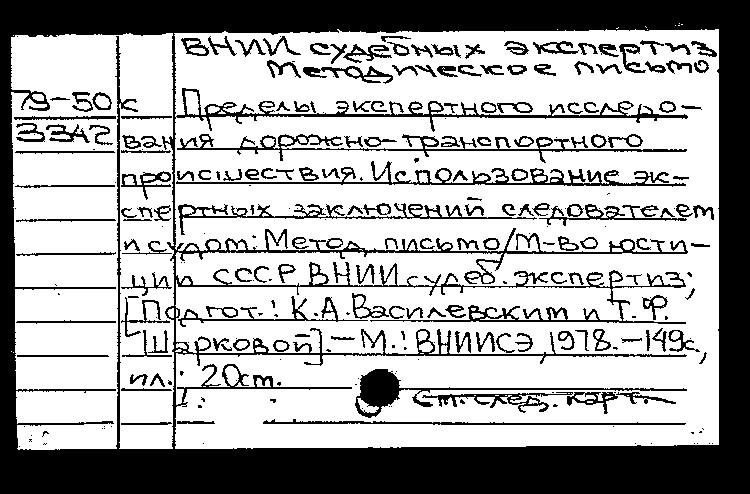 ВНИИ судебных экспертиз
Методическое письмо.
79-50 к Пределы экспертного исследо-
3342 вания дорожно-транспортного
происшествия. Использование эк-
спертных заключений следователем
и судом: Метод. письмо/М-во юсти-
ции СССР, ВНИИ судеб. экспертиз;
[Подгот.: К.А. Василевским и Т.Ф.
Шарковой]. — М.: ВНИИСЭ, 1978. — 149с.,
ил.; 20см.
I.
См. след. карт.